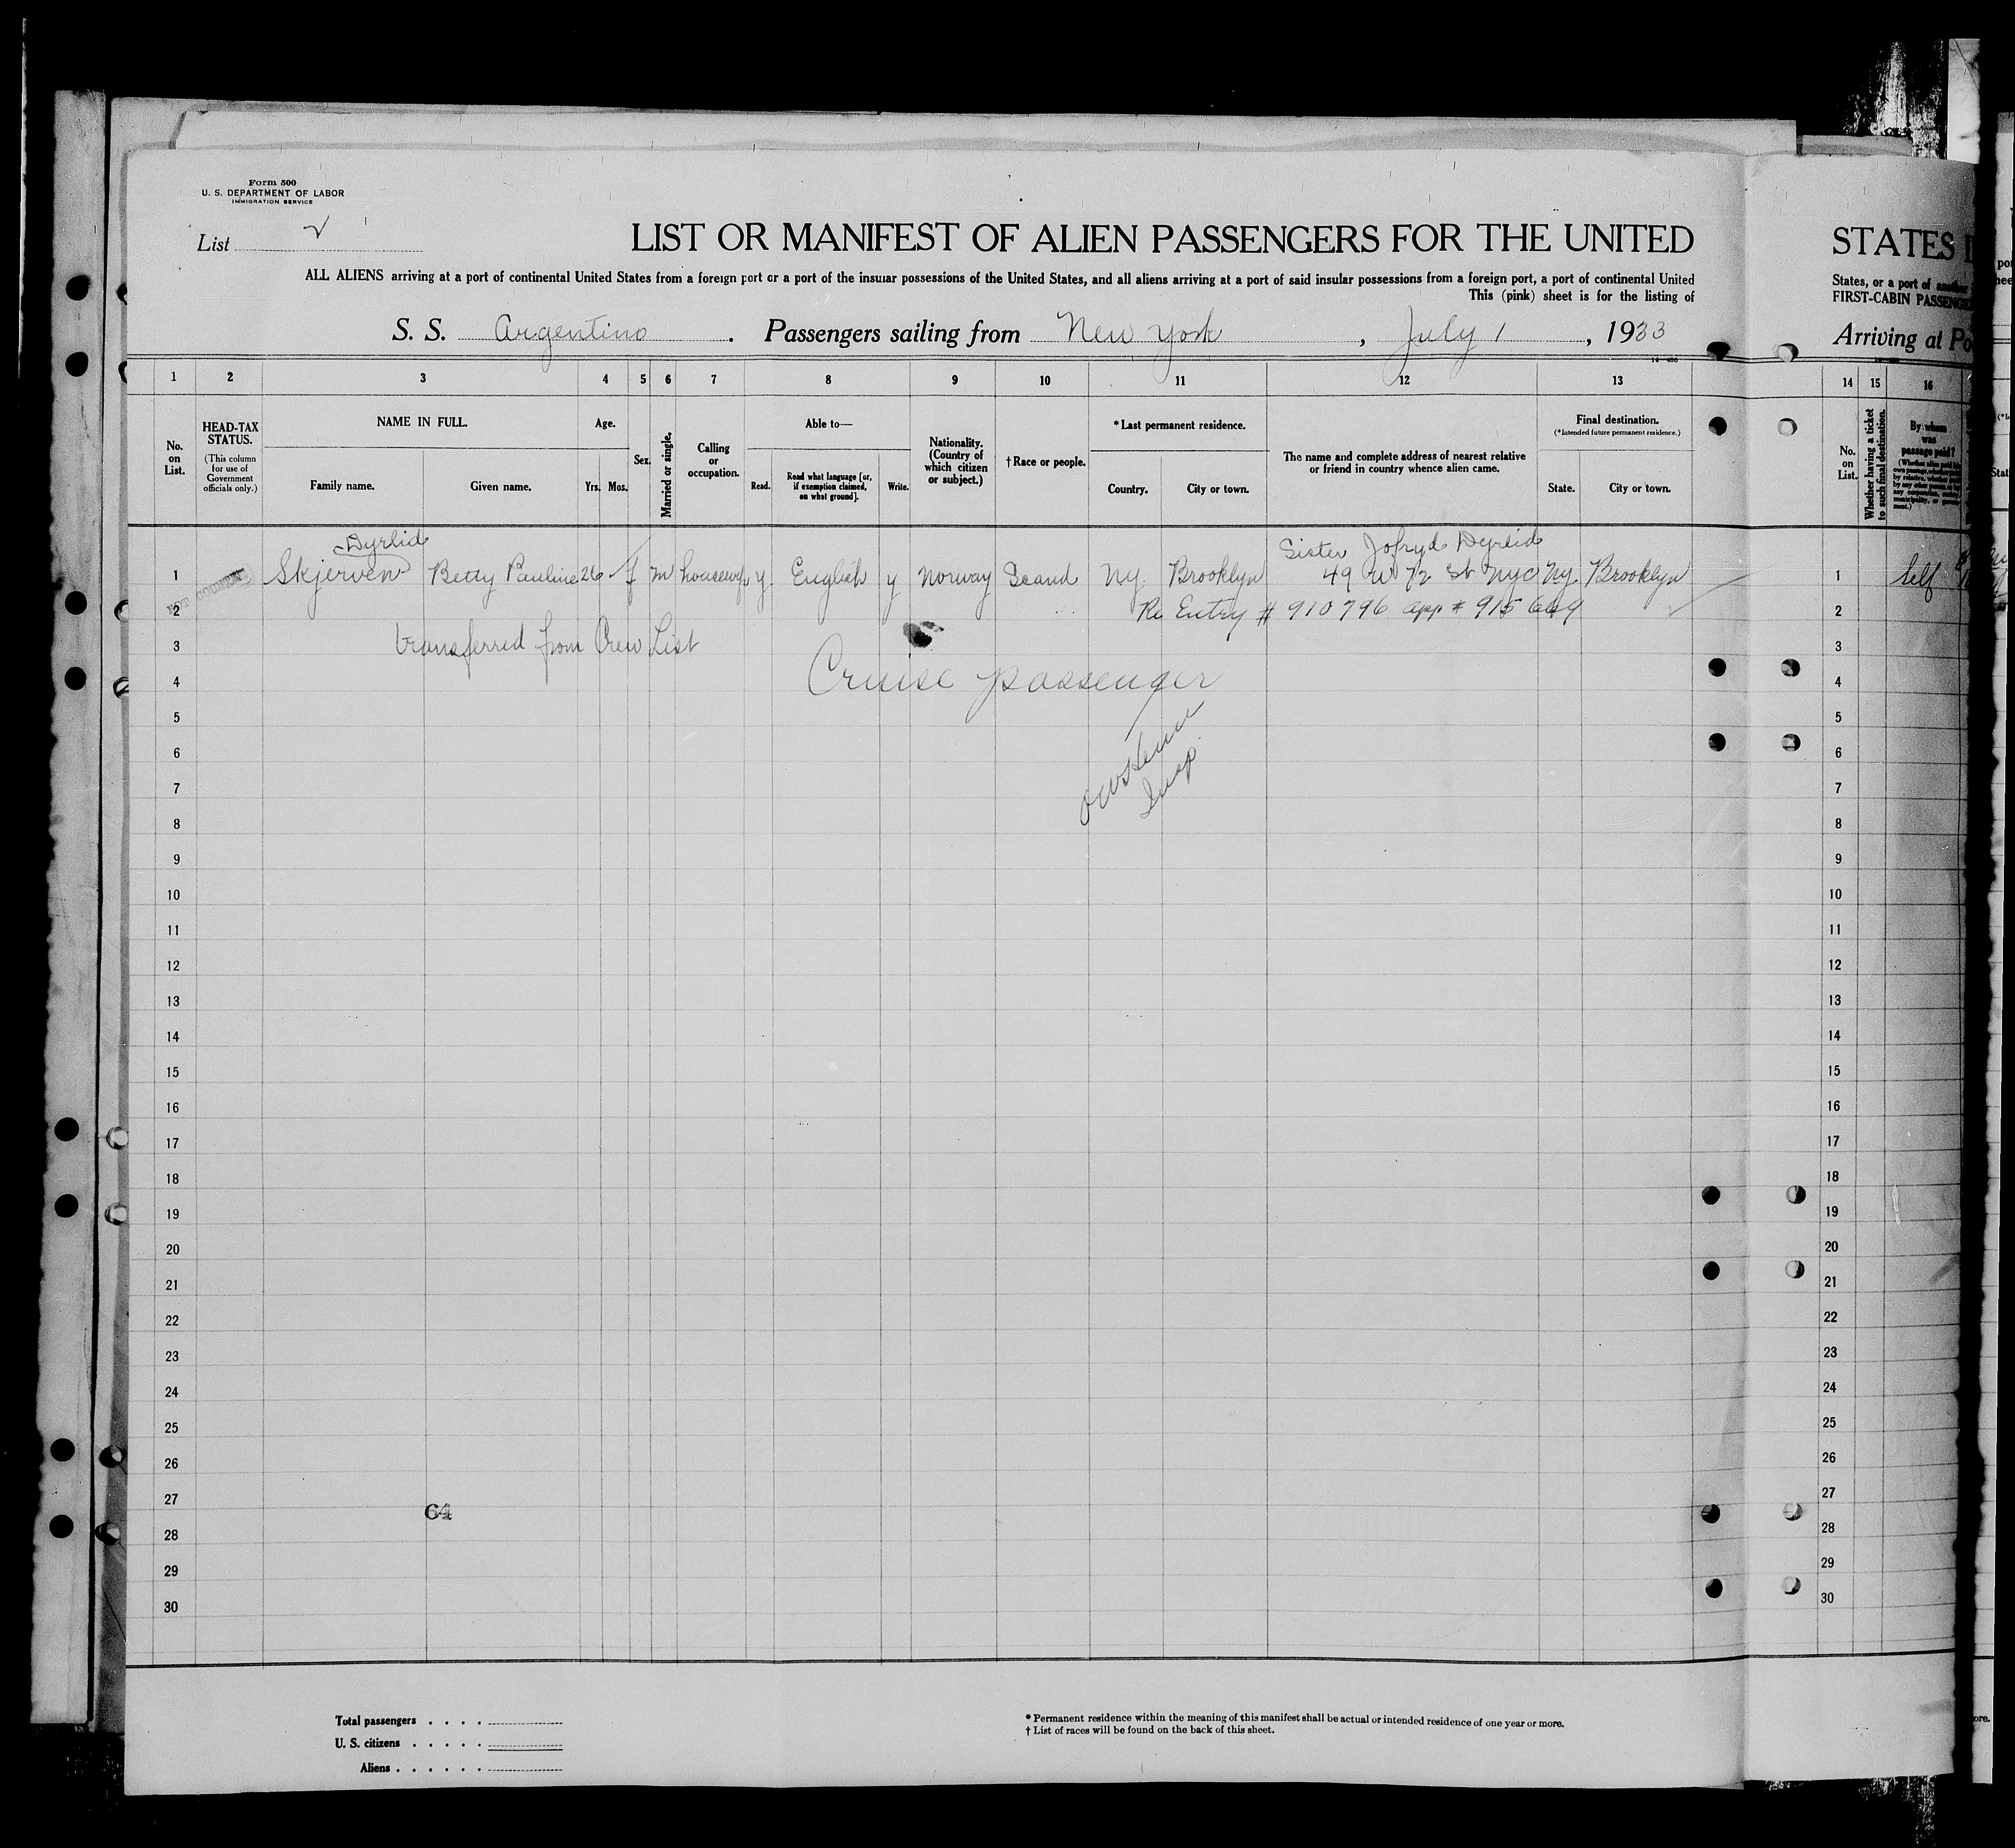 Form 500
U. S. DEPARTMENT OF LABOR
IMMIGRATION SERVICE
List 2
LIST OR MANIFEST OF ALIEN PASSENGERS FOR THE UNITED
ALL ALIENS arriving at a port of continental United States from a foreign port or a port of the insular possessions of the United States, and all aliens arriving at a port of said insular possessions from a foreign port, a port of continental United
This (pink) sheet is for the listing of
S. S. Argentino . Passengers sailing from New York , July 1 , 1933
STATES
States, or a port of another
FIRST-CABIN PASSENGE
Arriving at Po
1 2 3 4 5 6 7 8 9 10 11 12 13 14 15 16
No. on List.
HEAD-TAX STATUS.
(This column for use of Government officials only.)
NAME IN FULL.
Family name. Given name.
Age.
Yrs. Mos.
Sex.
Married or single.
Calling or occupation.
Able to—
Read. Read what language [or, if exemption claimed, on what ground]. Write.
Nationality. (Country of which citizen or subject.)
†Race or people.
*Last permanent residence.
Country. City or town.
The name and complete address of nearest relative or friend in country whence alien came.
Final destination.
(*Intended future permanent residence.)
State. City or town.
No. on List.
Whether having a ticket to such final destination.
By whom was passage paid?
Dyrlid Sister Jofryd Dyrlid
1 NOT COUNTED Skjerven Betty Pauline 26 f m housewife y English y Norway Scand Ny. Brooklyn 49 W 72 st NYC Ny. Brooklyn 1 Self
2 Re Entry # 910796 app # 915669 2
3 transferred from Crew List 3
4 Cruise passenger 4
5 5
6 6
7 Insp. 7
8 8
9 9
10 10
11 11
12 12
13 13
14 14
15 15
16 16
17 17
18 18
19 19
20 20
21 21
22 22
23 23
24 24
25 25
26 26
27 27
64
28 28
29 29
30 30
Total passengers . . . .
U. S. citizens . . . . .
Aliens . . . . . .
* Permanent residence within the meaning of this manifest shall be actual or intended residence of one year or more.
† List of races will be found on the back of this sheet.